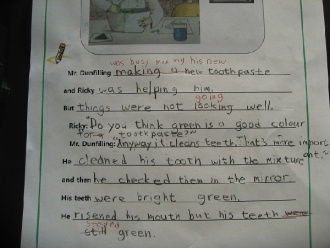 was busy making his new
Mr. Dunfilling making a new toothpaste
and Ricky was helping him.
going
But things were not looking well.
Ricky: "Do you think green is a good colour
for a toothpaste?"
Mr. Dunfilling: Anyway it cleans teeth. That's more import
ant."
He cleaned his tooth with the mixture
and then he checked them in the mirror.
His teeth were bright green.
He risened his mouth but his teeth were
still green.